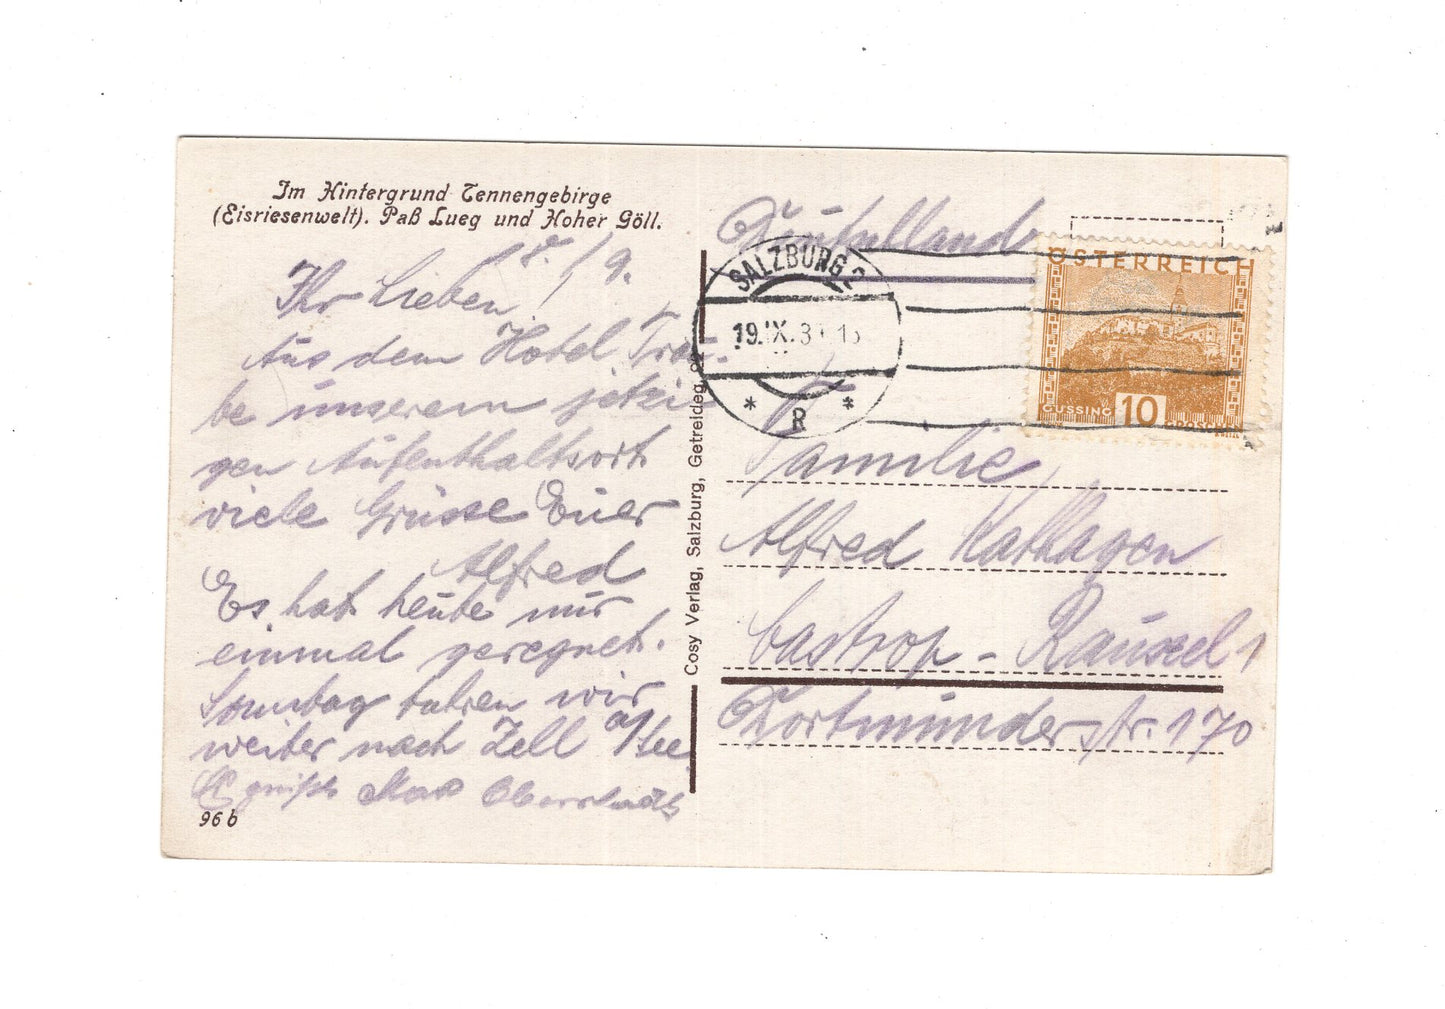 Im Hintergrund Tennengebirge
(Eisriesenwelt). Paß Lueg und Hoher Göll.
18./9.
Ihr Lieben!
Aus dem Hotel Trau-
be unserem jetzi-
gen Aufenthaltsort
viele Grüsse Euer
Alfred
Es hat heute nur
einmal geregnet.
Sonntag fahren wir
weiter nach Zell a/See
Max
96 b
Cosy Verlag, Salzburg, Getreideg.
Deutschland
SALZBURG 2
19.IX.3
* R *
ÖSTERREICH
GÜSSING 10 GROSCHEN
Familie
Alfred Kathagen
Castrop - Rauxel 1
Dortmunderstr. 170